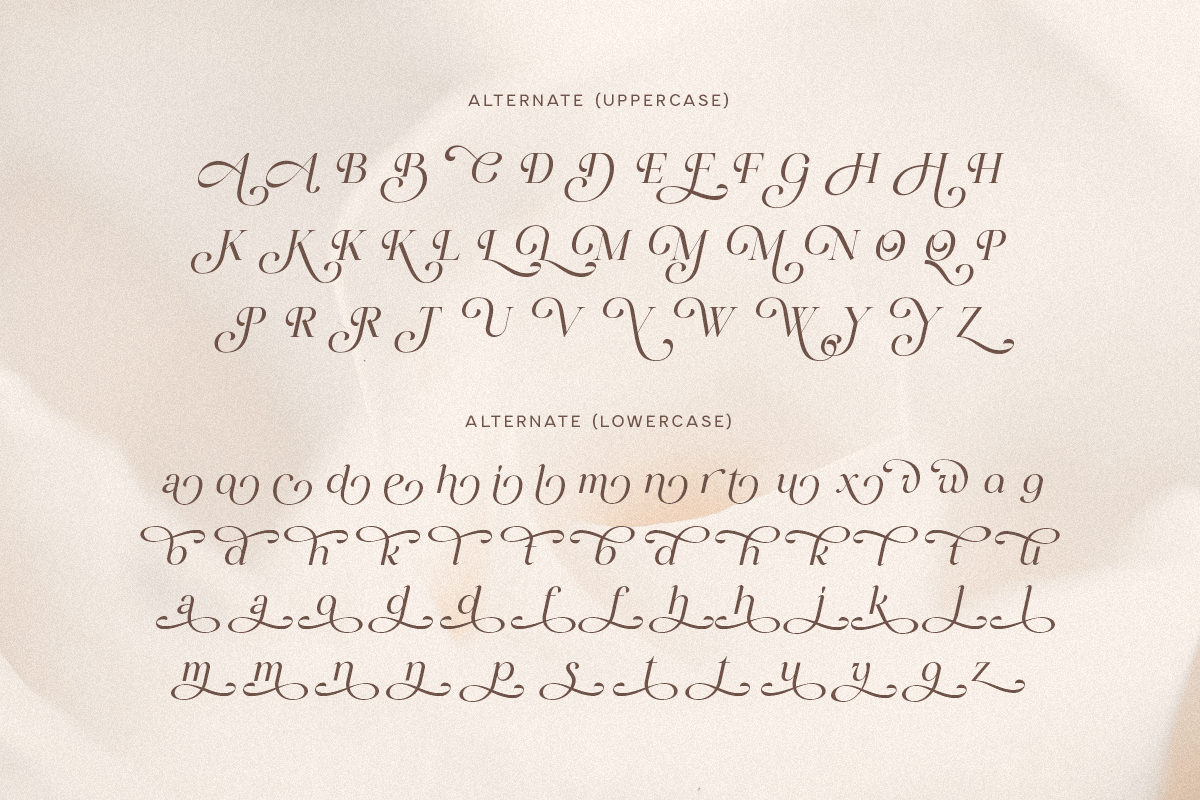 ALTERNATE (UPPERCASE)
A A B B C D D E E F G H H H
K K K K L L L M M M N O Q P
P R R J U V V W W Y Y Z
ALTERNATE (LOWERCASE)
a a c d e h i l m n r t u x v w a g
b d h k l t b d h k l t u
a a a d d f f h h j k l l
m m n n p s t t u y g z